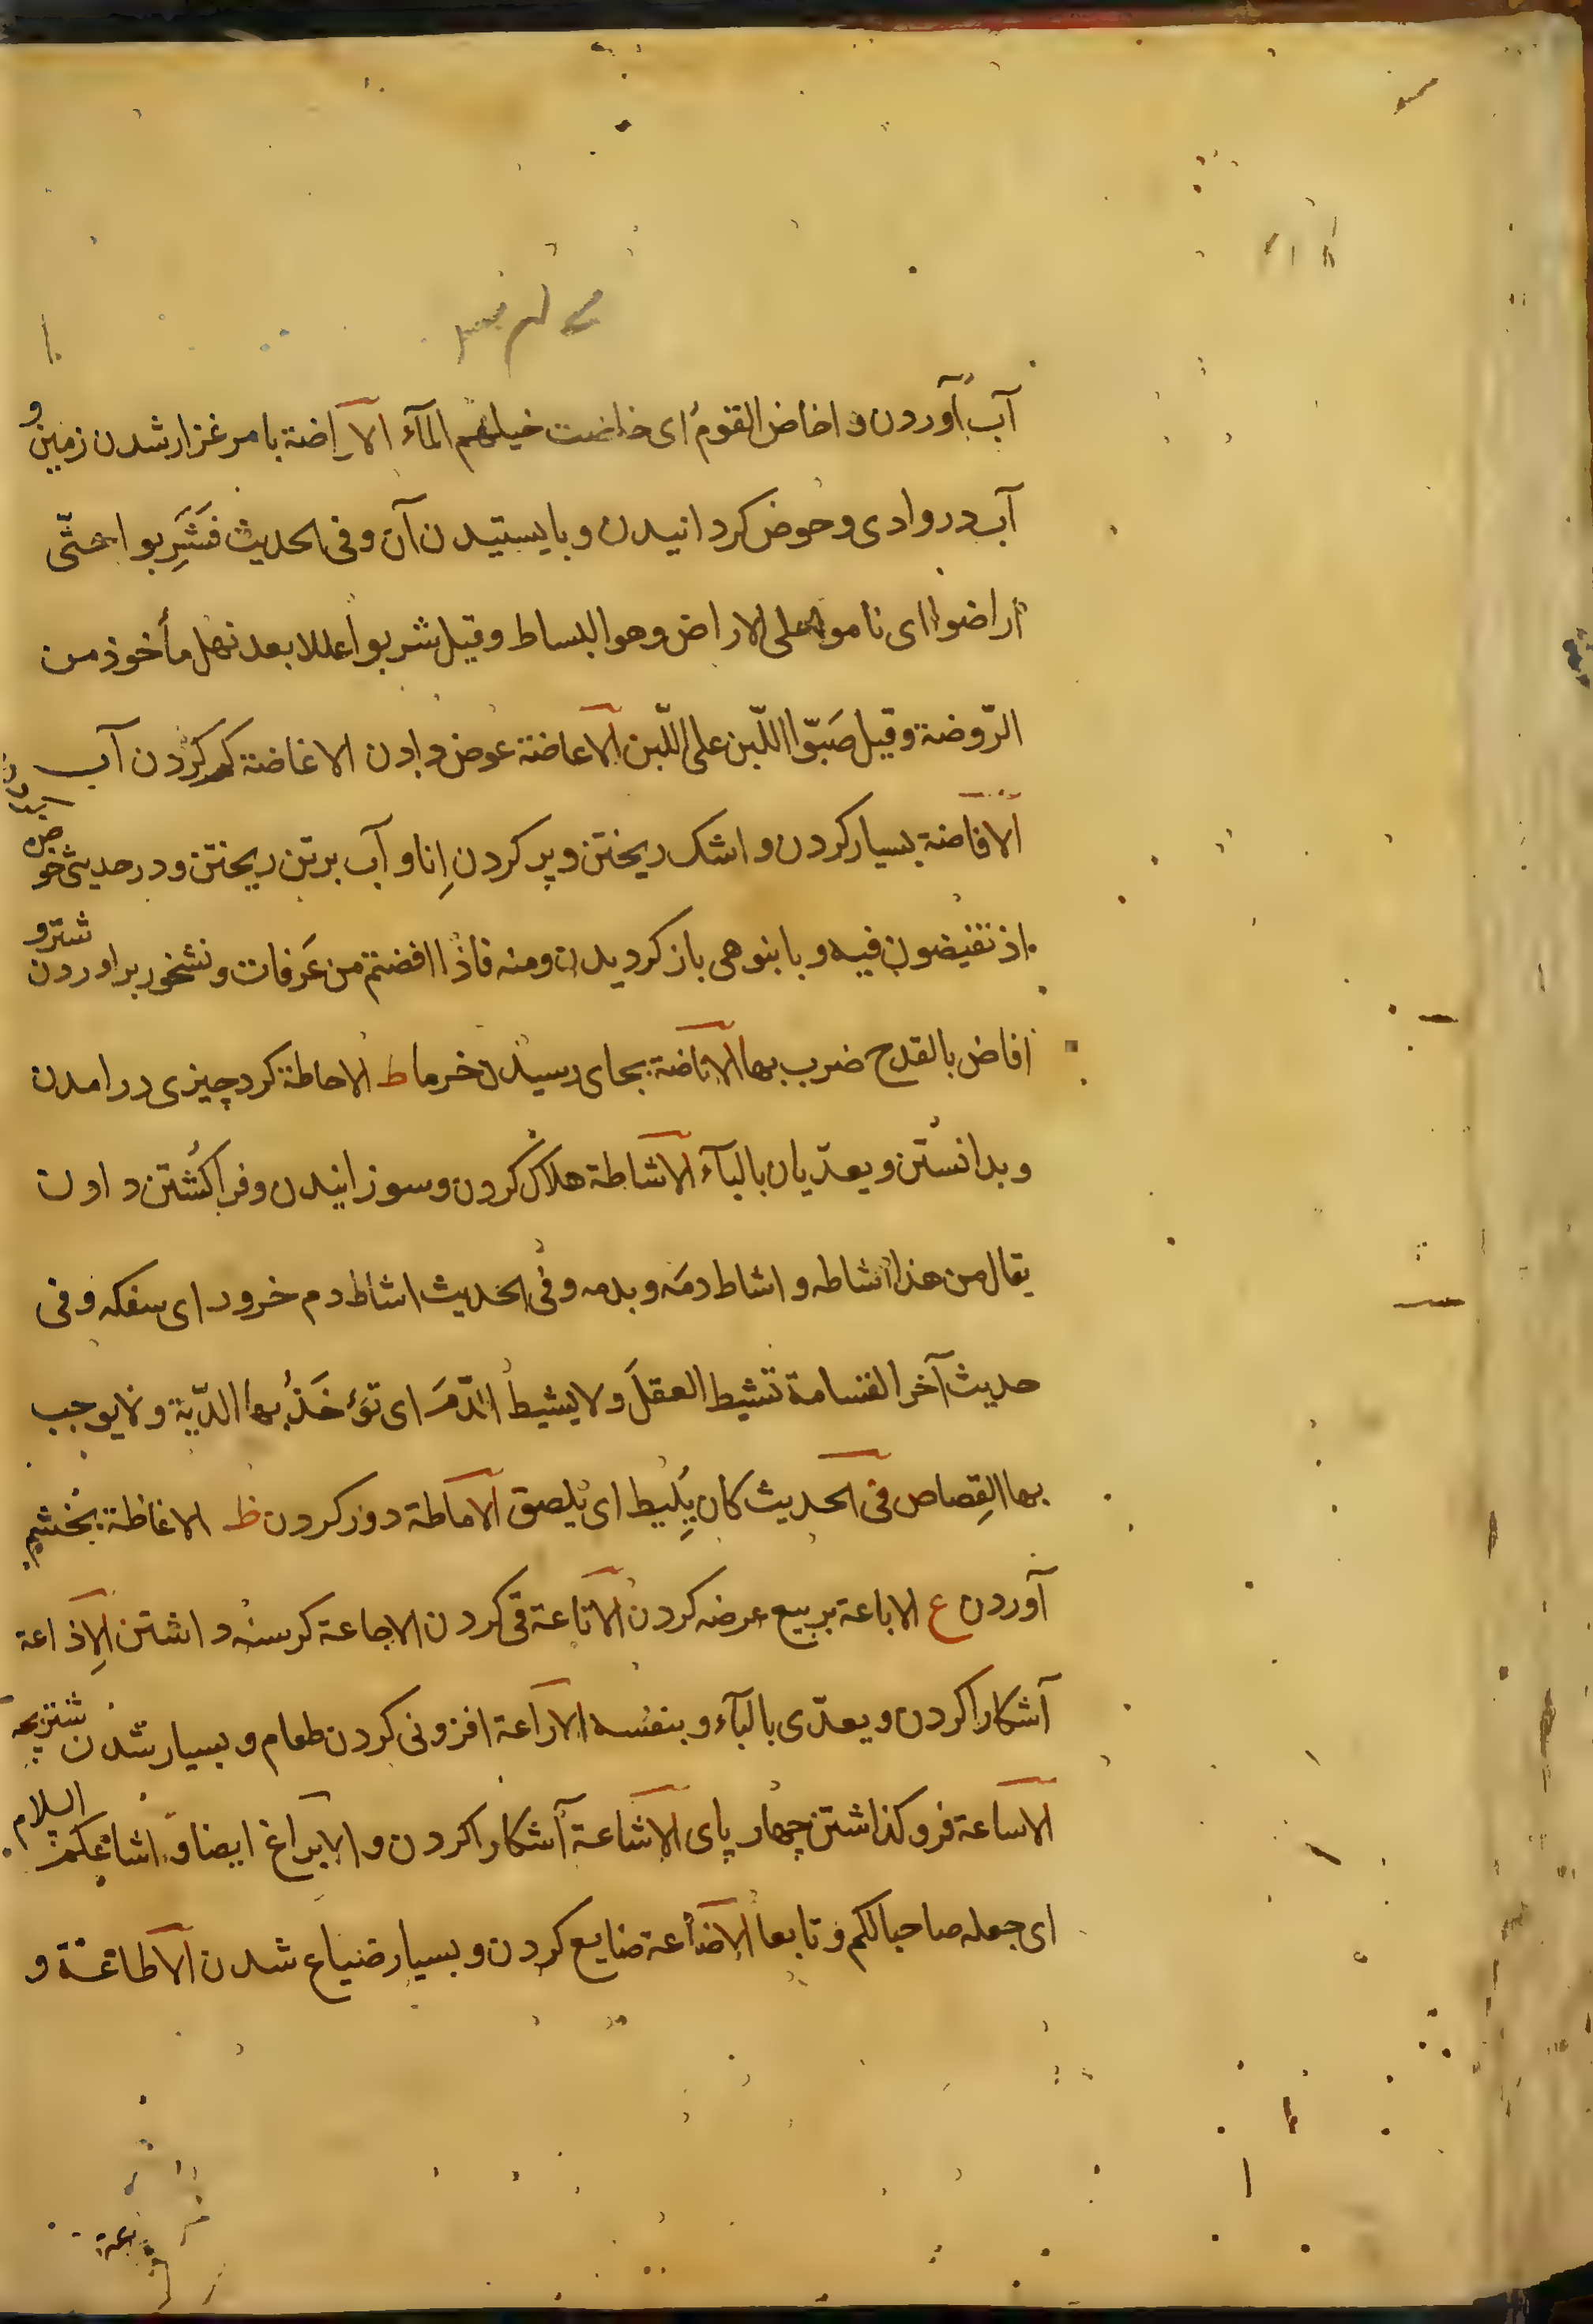 آب آوردن و اخاض القوم ای خاضت خیلهم المآء الاراضة با مرغزار شدن زمین و
آب در وادی و حوض کردانیدن و بایستیدن آن و فی الحدیث فشَرِبوا حتّی
اراضوا ای ناموا علی الاراض وهو البساط وقیل شربوا عللا بعد نهل مأخوذ من
الرّوضة وقیل صَبّوا اللّبن علی اللّبن الاعاضة عوض دادن الاغاضة کم کردن آب
الافاضة بسیار کردن و اشک ریختن و پر کردن اِنا و آب برتن ریختن و در حدیث خو
ض
اذ تفیضون فیه و بانبوهی باز کردیدن و منه فاذا افضتم من عَرفات و نشخور براوردن
شتر و
افاض بالقدح ضرب بها الاناضة بجای رسیدن خرما ط الاحاطة کرد چیزی در امدن
و بدانستن و یعدّیان بالبآء الاشاطة هلاک کردن و سوزانیدن و فرا کُشتن دادن
یقال من هذا اشاطه و اشاط دمَه و بدمه و فی الحدیث اشاط دم خرور ای سفکه و فی
حدیث آخر القسامة تشیط العقلَ و لا یشیط الدّمَ ای تؤخَذُ بها الدّیة و لا یوجب
بها القِصاص فی الحدیث کان یُلِیط ای یلصق الاماطة دور کردن ظ الاغاظة بخشم
آوردن ع الاباعة بربیع عرضه کردن الاتاعة قی کردن الاجاعة کرسنه داشتن الاِذاعة
آشکارا کردن و یعدّی بالبآء و بنفسه الاراعة افزونی کردن طعام و بسیار شدن شتر بچه
الاساعة فرو کذاشتن چهار پای الاشاعة آشکارا کردن و الایزاغ ایضا و اشاعکم
السلام
ای جعله صاحبا لکم و تابعا الاضاعة ضایع کردن و بسیار ضیاع شدن الاطاعة و